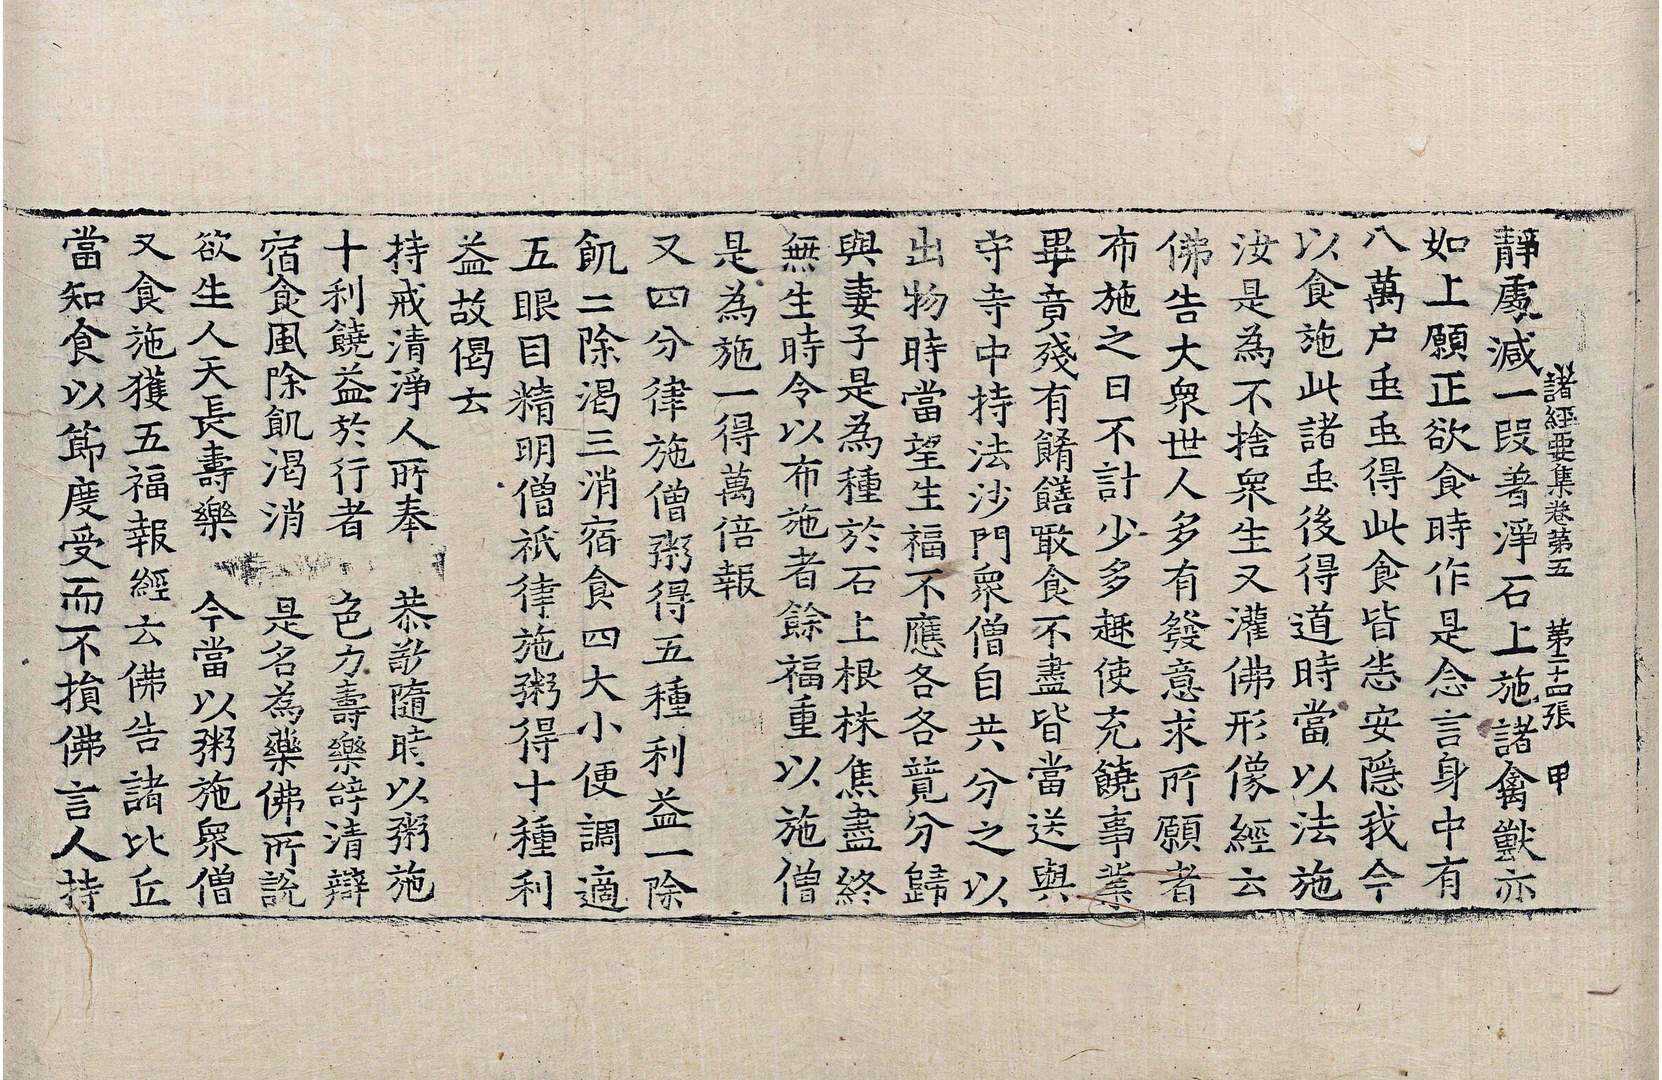 諸經要集卷第五　第二十四張　甲
靜處減一段著淨石上施諸禽獸亦
如上願正欲食時作是念言身中有
八萬户虫虫得此食皆恙安隱我今
以食施此諸虫後得道時當以法施
汝是為不捨衆生又灌佛形像經云
佛告大衆世人多有發意求所願者
布施之日不計少多趣使充饒事業
畢竟殘有餚饍噉食不盡皆當送與
守寺中持法沙門衆僧自共分之以
出物時當望生福不應各各競分歸
與妻子是為種於石上根株焦盡終
無生時令以布施者餘福重以施僧
是為施一得萬倍報
又四分律施僧粥得五種利益一除
飢二除渴三消宿食四大小便調適
五眼目精明僧祇律施粥得十種利
益故偈云
持戒清淨人所奉　恭敬隨時以粥施
十利饒益於行者　色力壽樂辝清辯
宿食風除飢渴消　是名為藥佛所說
欲生人天長壽樂　今當以粥施衆僧
又食施獲五福報經云佛告諸比丘
當知食以節度受而不損佛言人持